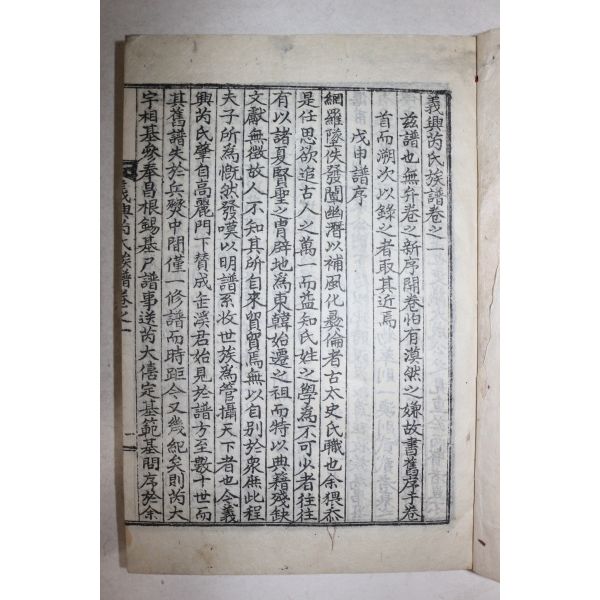 義興芮氏族譜卷之一
玆譜也無弁卷之新序開卷怕有漠然之嫌故書舊序于卷
首而溯次以錄之者取其近焉
戊申譜序
網羅墜佚發闡幽潛以補風化彜倫者古太史氏職也余猥忝
是任思欲追古人之萬一而益知氏姓之學爲不可少者往往
有以諸夏賢聖之胄辟地爲東韓始遷之祖而特以典籍殘缺
文獻無徵故人不知其所自來貿貿焉無以自別於衆庶此程
夫子所爲慨然發嘆以明譜系收世族爲管攝天下者也今義
興芮氏肇自高麗門下賛成缶溪君始見於譜方至數十世而
其舊譜失於兵燹中間僅一修譜而時距今又幾紀矣則芮大
宇相基參奉昌根錫基尸譜事送芮大僖定基範基問序於余
義興芮氏族譜卷之一
一